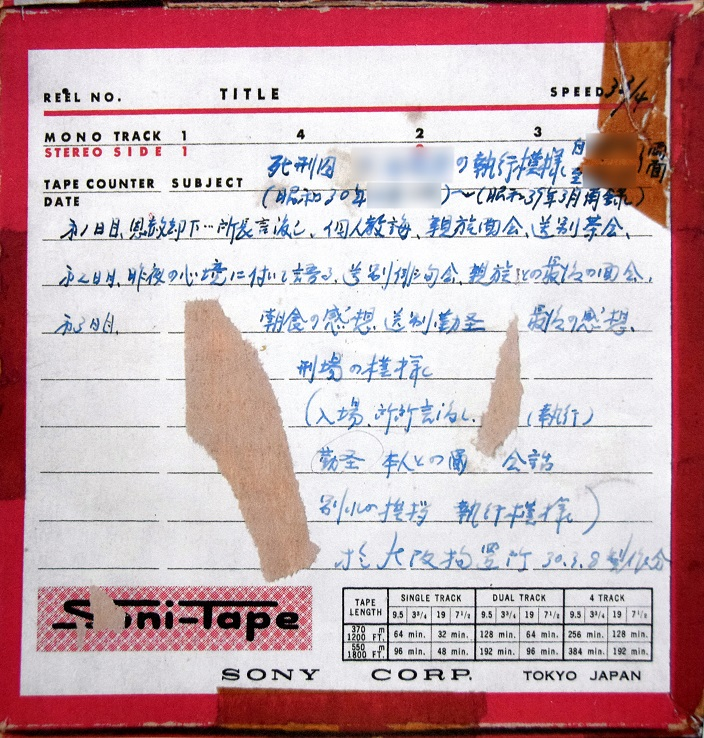 REEL NO. TITLE SPEED 3 3/4
MONO TRACK 1 4 2 3
STEREO SIDE 1
死刑囚 の執行模様 自 至 両面
TAPE COUNTER SUBJECT
DATE
(昭和30年 )〜(昭和39年3月再録)
才1日目、恩赦却下…所長言渡し、個人教誨、親族面会、送別茶会、
才2日目、昨夜の心境に付いて語る、送別俳句会、親族との最後の面会、
才3日目、 朝食の感想、送別勤至 最後の感想、
刑場の模様
(入場、所 言渡し、 (執行)
勤至 本人との面 会話
別れの挨拶 執行模様)
於大阪拘置所 30.3.8 製作分
Soni-Tape
TAPE LENGTH SINGLE TRACK DUAL TRACK 4 TRACK
9.5 3 3/4 19 7 1/2 9.5 3 3/4 19 7 1/2 9.5 3 3/4 19 7 1/2
370 m 1200 FT. 64 min. 32 min. 128 min. 64 min. 256 min. 128 min.
550 m 1800 FT. 96 min. 48 min. 192 min. 96 min. 384 min. 192 min.
SONY CORP. TOKYO JAPAN